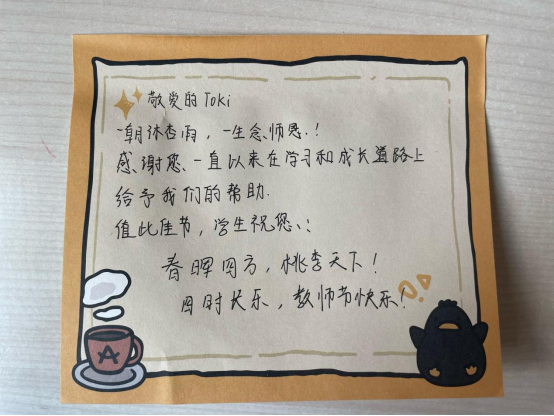 敬爱的Toki
一朝沐杏雨，一生念师恩！
感谢您、一直以来在学习和成长道路上
给予我们的帮助.
值此佳节，学生祝您：
春晖四方，桃李天下！
四时长乐，教师节快乐！
A